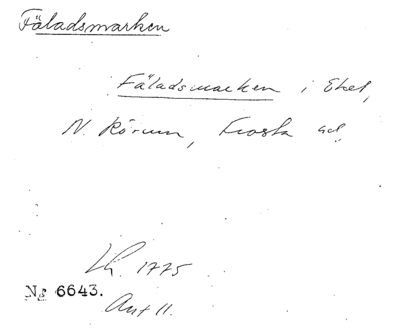 Fäladsmarken
Fäladsmarken i Eket,
N. Rörum, Frosta hd.
1775
No 6643.
Akt 11.